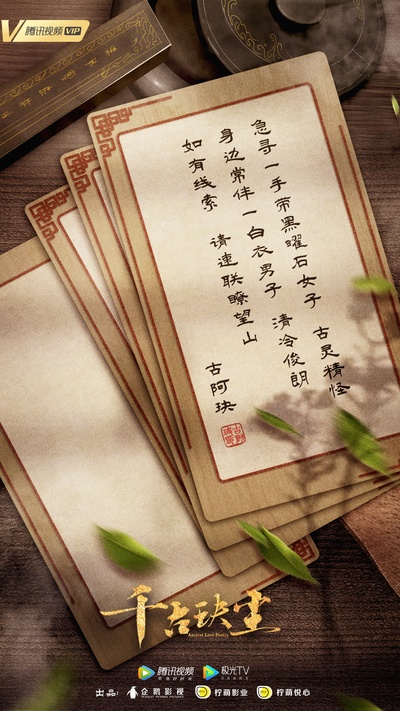 腾讯视频VIP
急寻一手带黑曜石女子 古灵精怪
身边常伴一白衣男子 清冷俊朗
如有线索 请速联瞭望山
古阿玦
千古玦尘
Ancient Love Poetry
腾讯视频
极光TV
出品:
企鹅影视
柠萌影业
柠萌悦心